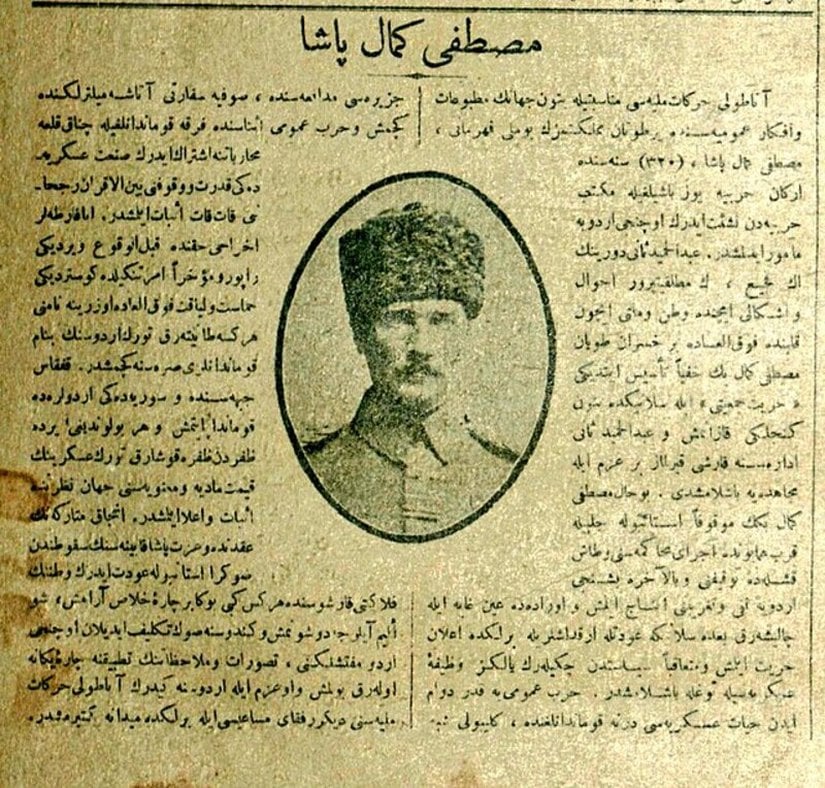 مصطفی کمال پاشا
آناطولی حرکات ملیه‌سی مناسبتیله بتون جهانك مطبوعات
وافکار عمومیه‌سنده یر طوتان مملکتمزك بو ملی قهرمانی ،
مصطفی کمال پاشا ، (۳۲۰) سنه‌سنده
ارکان حربیه یوز باشیلغیله مکتب
حربیه‌دن نشئت ایدرك اوچنجی اردویه
مأمور ایدلمشدر. عبدالحمید ثانی دورینك
اك فجیع ، ك احوال
و اشکالی ایچنده وطن وملتی ایچون
قلبنده فوق العـاده بر طویان
مصطفی کمال بك خفیاً تأسیس ایتدیکی
« حریت جمعیتی » ایله سلانیکده بتون
کنجلکی قازانمش و عبدالحمید ثانی
اداره‌سنه قارشی بر عزم ایله
مجاهده‌یه باشلامشدی . بو حال مصطفی
کمال بكك موقوفاً استانبوله جلبیله
قرب همایونده اجرای محاکمه‌سنی وطاش
قشله‌ده توقیفنی وبالآخره بشنجی
اردویه نفی وتغریبنی انتـاج ایتمش و اوراده‌ده عین غایه ایله
چالیشه‌رق بعده سلانیکه عودتله ارقداشلریله برلکده اعلان
حریت ایتمش ومتعاقباً سیـاستدن چکیله‌رك یالکز وظیفهٔ
عسکریه‌سیله توغله باشـلامشدر . حرب عمومی‌یه قدر دوام
ایدن حیات عسکریه‌سی درنه قوماندانلغنده ، کلیبولی شبه
جزیره‌سی مدافعه‌سنده ، صوفیه سفارتی آتاشه میلترلکنده
کچمش وحرب عمومی اثناسنده فرقه قوماندانلغیله چناق قلعه
محارباتنه اشتراك ایدرك صنعت عسکریه‌ـ
ده‌کی قدرت ووقوفنی بین الاقران رجحاـ
نی قات قات اثبات ایتمشدر. انافارطه‌لر
اخراجی حقنده قبل الوقوع ویردیکی
راپور ومؤخراً امر تنکیلده کوستردیکی
حماست ولیاقت فوق العاده اوزرینه نامنی
هر کسه طانیته‌رق تورك اردوسنك بنام
قوماندانلری صره‌سنه کچمشدر. قفقاس
جبهه‌سنده و سوریه‌ده‌کی اردولرده
قوماندا ایتمش و هر بولوندیغی یرده
ظفردن ظفره قوشارق تورك عسکرینك
قیمت مادیه ومعنویه‌سنی جهان نظرنده
اثبـات واعلا ایتمشدر. انجاق متارکه‌نك
عقدنده وعزت پاشا قابینه‌سنك سقوطندن
صوکرا استانبوله عودت ایدرك وطننك
فلاکتی قارشوسنده هرکس کبی بوکا بر چارهٔ خلاص آرامش، شو
الیم آیلرجه دوشونمش وکندوسنه صوك تکلیف ایدیلان اوچنجی
اردو مفتشلکنی ، تصورات وملاحظاتنك تطبیقنه چارهٔ یکانه
اوله‌رق بولمش واو عزم ایله اردوسنه کیدرك آناطولی حرکات
ملیه‌سنی دیکر رفقای مساعیسی ایله برلکده میدانه کتیرمشدر.